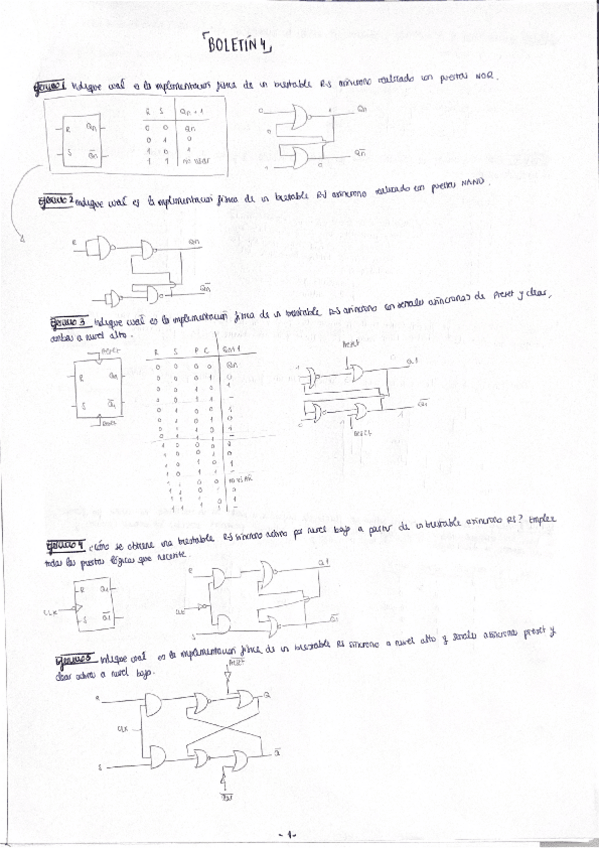 「BOLETÍN 4」
Ejercicio 1 Indique cual es la implementacion física de un biestable RS asíncrono realizado con puertas NOR.
R S Qn+1
0 0 Qn
0 1 0
1 0 1
1 1 no usar
R Qn
S Qn
0 Qn
0
0
0 Qn
Ejercicio 2 Indique cual es la implementacion física de un biestable RS asíncrono realizado con puertas NAND.
R Qn
Qn
Ejercicio 3 Indique cual es la implementación física de un biestable RS asíncrono con señales asíncronas de Preset y clear,
ambas a nivel alto.
R S P C Qn+1
R Qn
S
0 0 0 0 Qn
0 0 0 1 0
0 0 1 0 1
Ejercicio 4 ¿Cómo se obtiene una biestable RS síncrono activo por nivel bajo a partir de un biestable asíncrono RS? Emplee
todas las puertas lógicas que necesite.
R
S
CLK
R
CLK
S
Ejercicio 5 Indique cual es la implementación física de un biestable RS síncrono a nivel alto y señales asíncronas preset y
clear activas a nivel bajo.
R
Q
CLK
S
Q
- 1 -